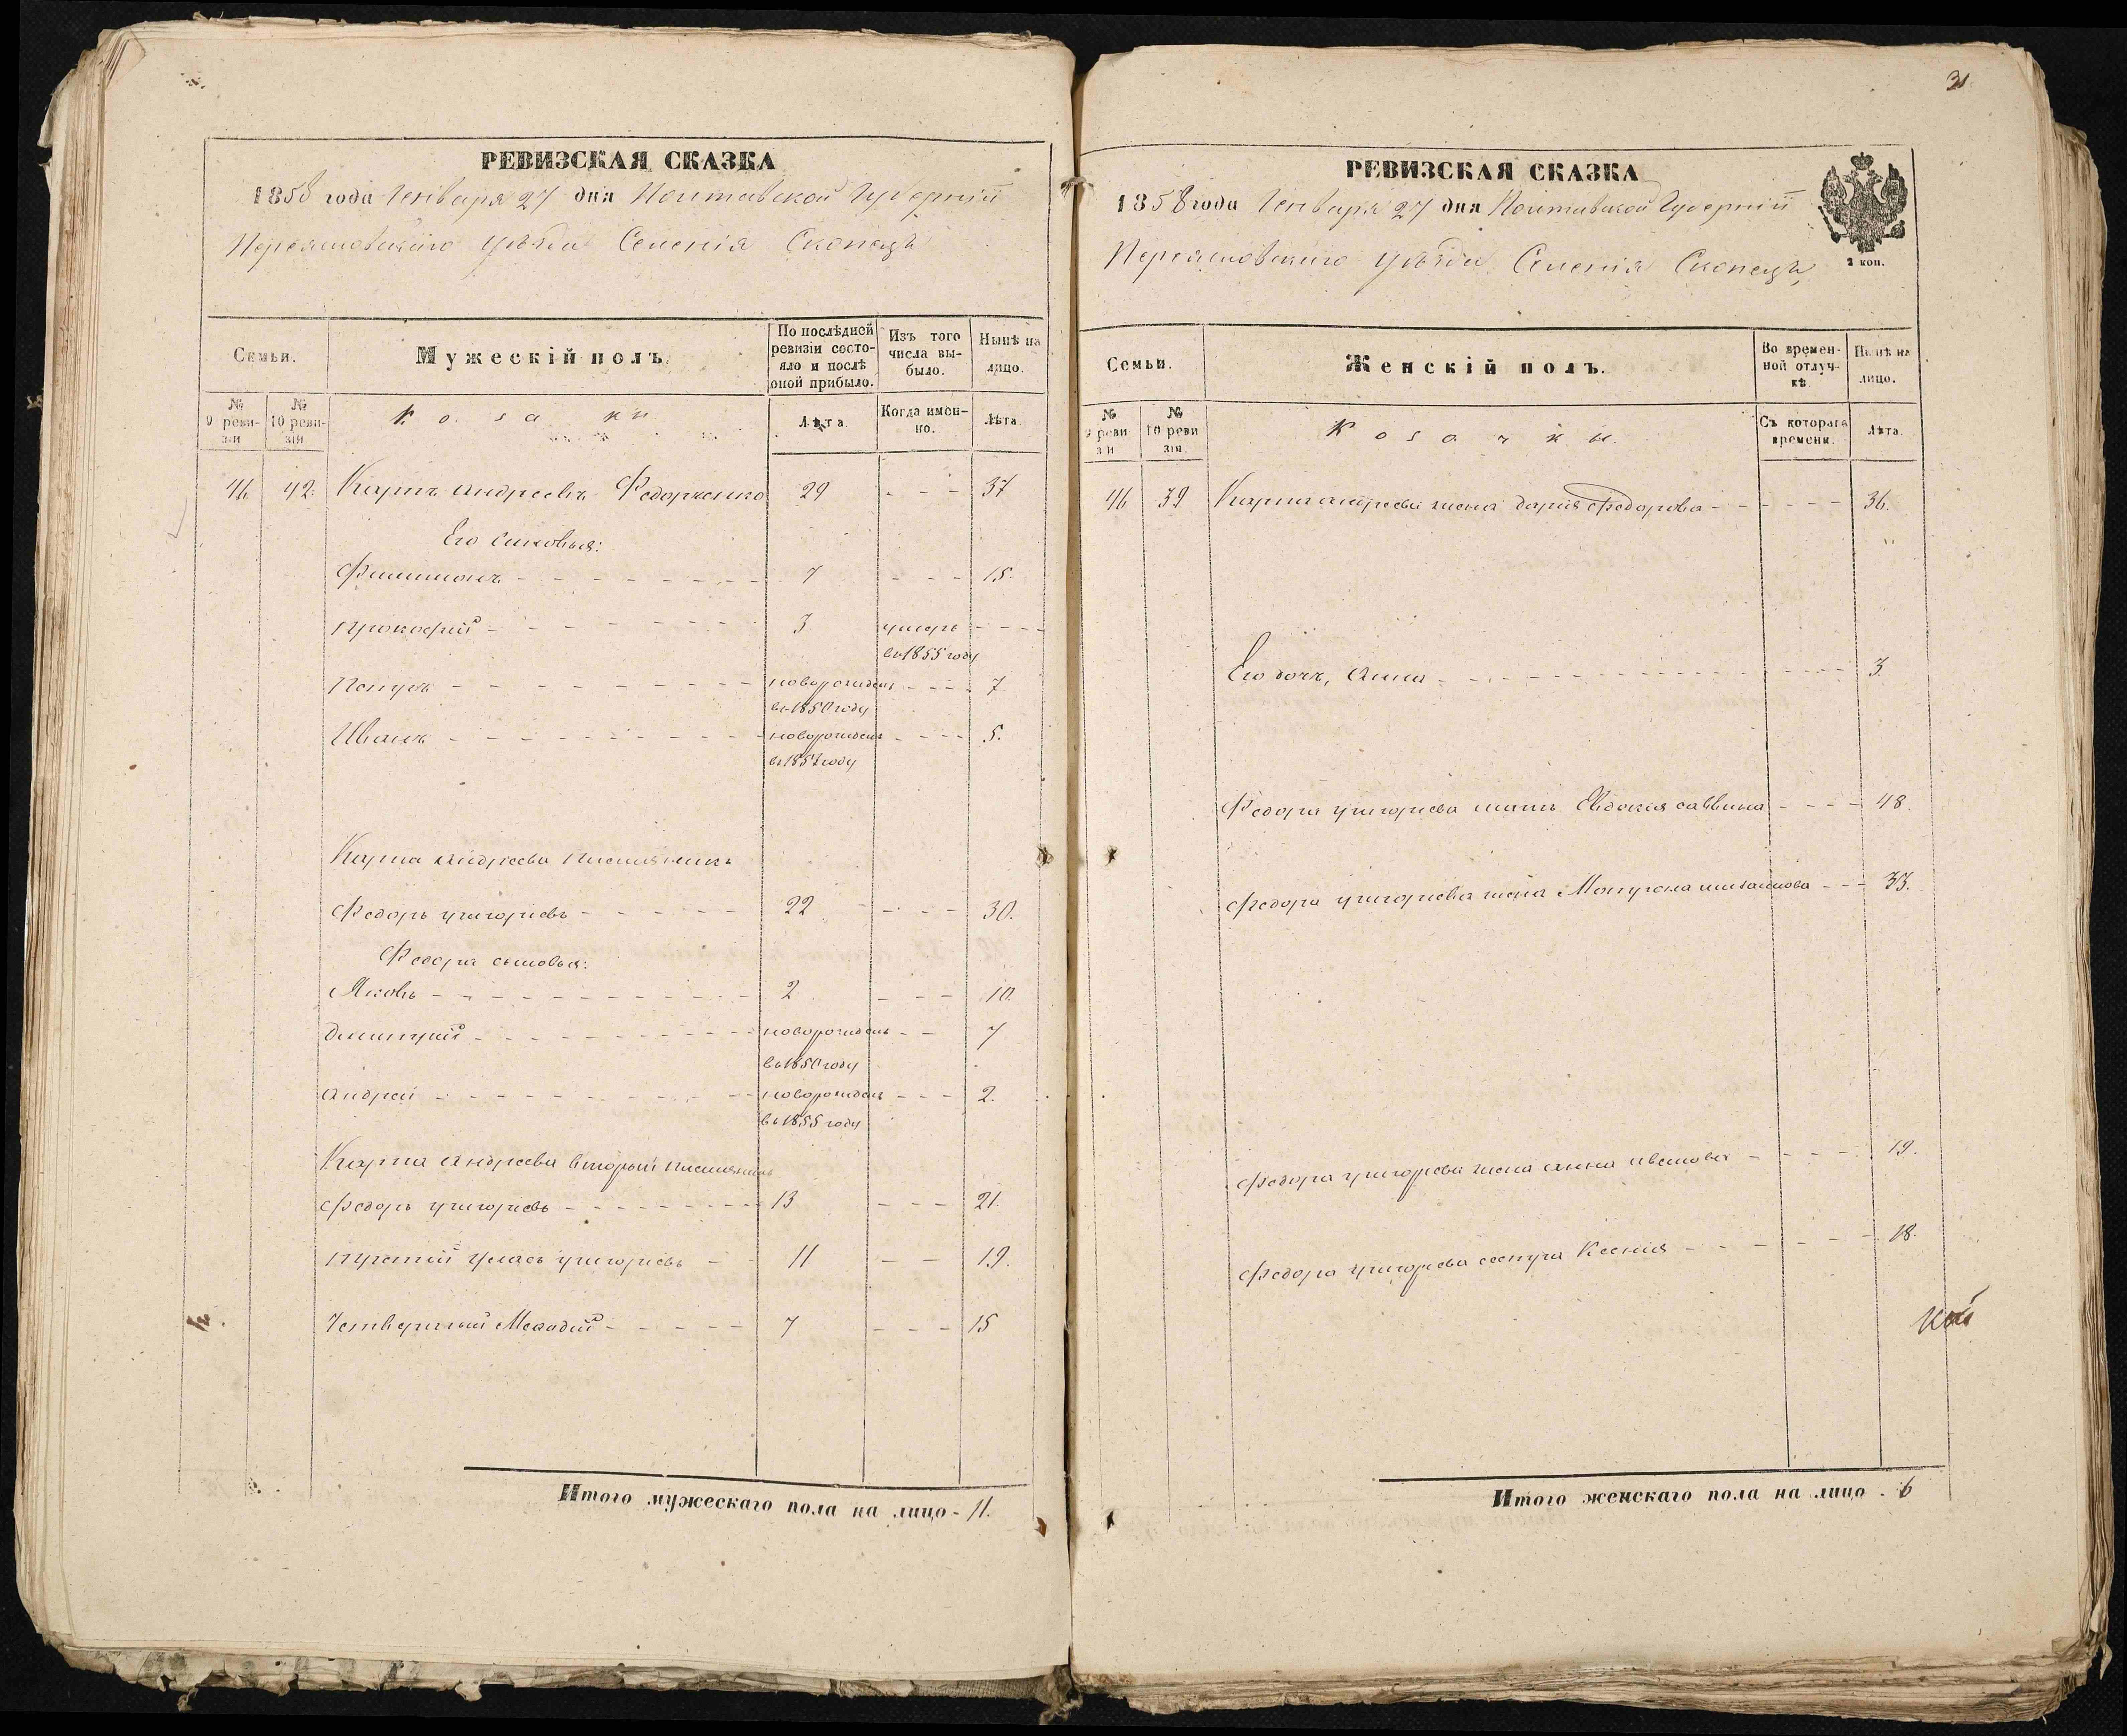 РЕВИЗСКАЯ СКАЗКА
1858 года Генваря 27 дня Полтавской Губерніи
Переяславскаго уѣзда Селенія Скопецъ
Семьи.
Мужескій полъ.
По послѣдней ревизіи состояло и послѣ оной прибыло.
Изъ того числа выбыло.
Нынѣ на лицо.
№ 9 ревизіи
№ 10 ревизіи
Козаки
Лѣта.
Когда именно.
Лѣта.
46 42. Карпъ Андреевъ Федорченко 29 - - - 37
Его сыновья:
Филимонъ - - - 7 - - - 15.
Прокофий - - - 3 умеръ - - -
въ 1855 году
Петръ - - - новорожденъ - - - 7
въ 1850 году
Иванъ - - - новорожденъ - - - 5.
году
Карпа Андреева племянникъ
Федоръ Григорьевъ - - - 22 - - - 30.
Федора сыновья:
Яковъ - - - 2 - - - 10.
Дмитрий - - - новорожденъ - - 7
въ 1850 году
Андрей - - - новорожденъ - - - 2.
въ 1855 году
Карпа Андреева вторый племянникъ
Федоръ Григорьевъ - - - 13 - - - 21.
третий Улась Григорьевъ - - 11 - - 19.
Четвертый Мефодий - - - 7 - - - 15
Итого мужескаго пола на лицо - 11.
31
РЕВИЗСКАЯ СКАЗКА
1858 года Генваря 27 дня Полтавской Губерніи
Переяславскаго уѣзда Селенія Скопецъ
2 коп.
Семьи.
Женскій полъ.
Во временной отлучкѣ.
Нынѣ на лицо.
№ 9 ревизіи
№ 10 ревизія.
Козачки.
Съ котораго времени.
Лѣта.
46 39 Карпа Андреева жена Дария Федорова - - - 36.
Его дочь, Анна - - - 3.
Федора Григорьева мать Евдокия Саввина - - - 48.
Федора Григорьева жена Мотрона - - 33.
Федора Григорьева жена Анна Иванова - - - 19.
Федора Григорьева сестра Ксения - - - 18.
Итого женскаго пола на лицо - 6